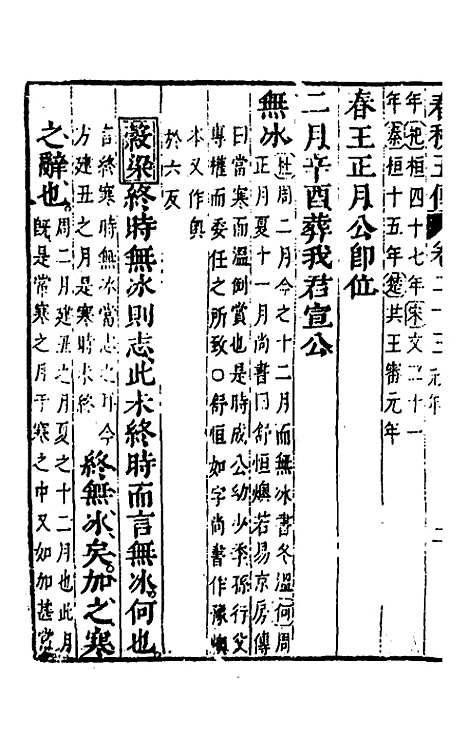 春秋五傳 卷二十三 元年 二
年杞桓四十七年宋文二十一
年秦桓十五年楚共王審元年
春王正月公卽位
二月辛酉葬我君宣公
無冰
杜周二月今之十二月而無冰書冬溫何周
正月夏十一月尚書曰舒恒燠若易京房傳
曰當寒而溫倒賞也是時成公幼少季孫行父
專權而委任之所致○舒恒如字尚書作豫燠
本又作奧
於六反
穀梁終時無冰則志此未終時而言無冰何也
終無冰矣加之寒
言終寒時無冰當志之耳今
方建丑之月是寒時未終
之辭也
周二月建丑之月夏之十二月也此月
旣是常寒之月于寒之中又如加甚常